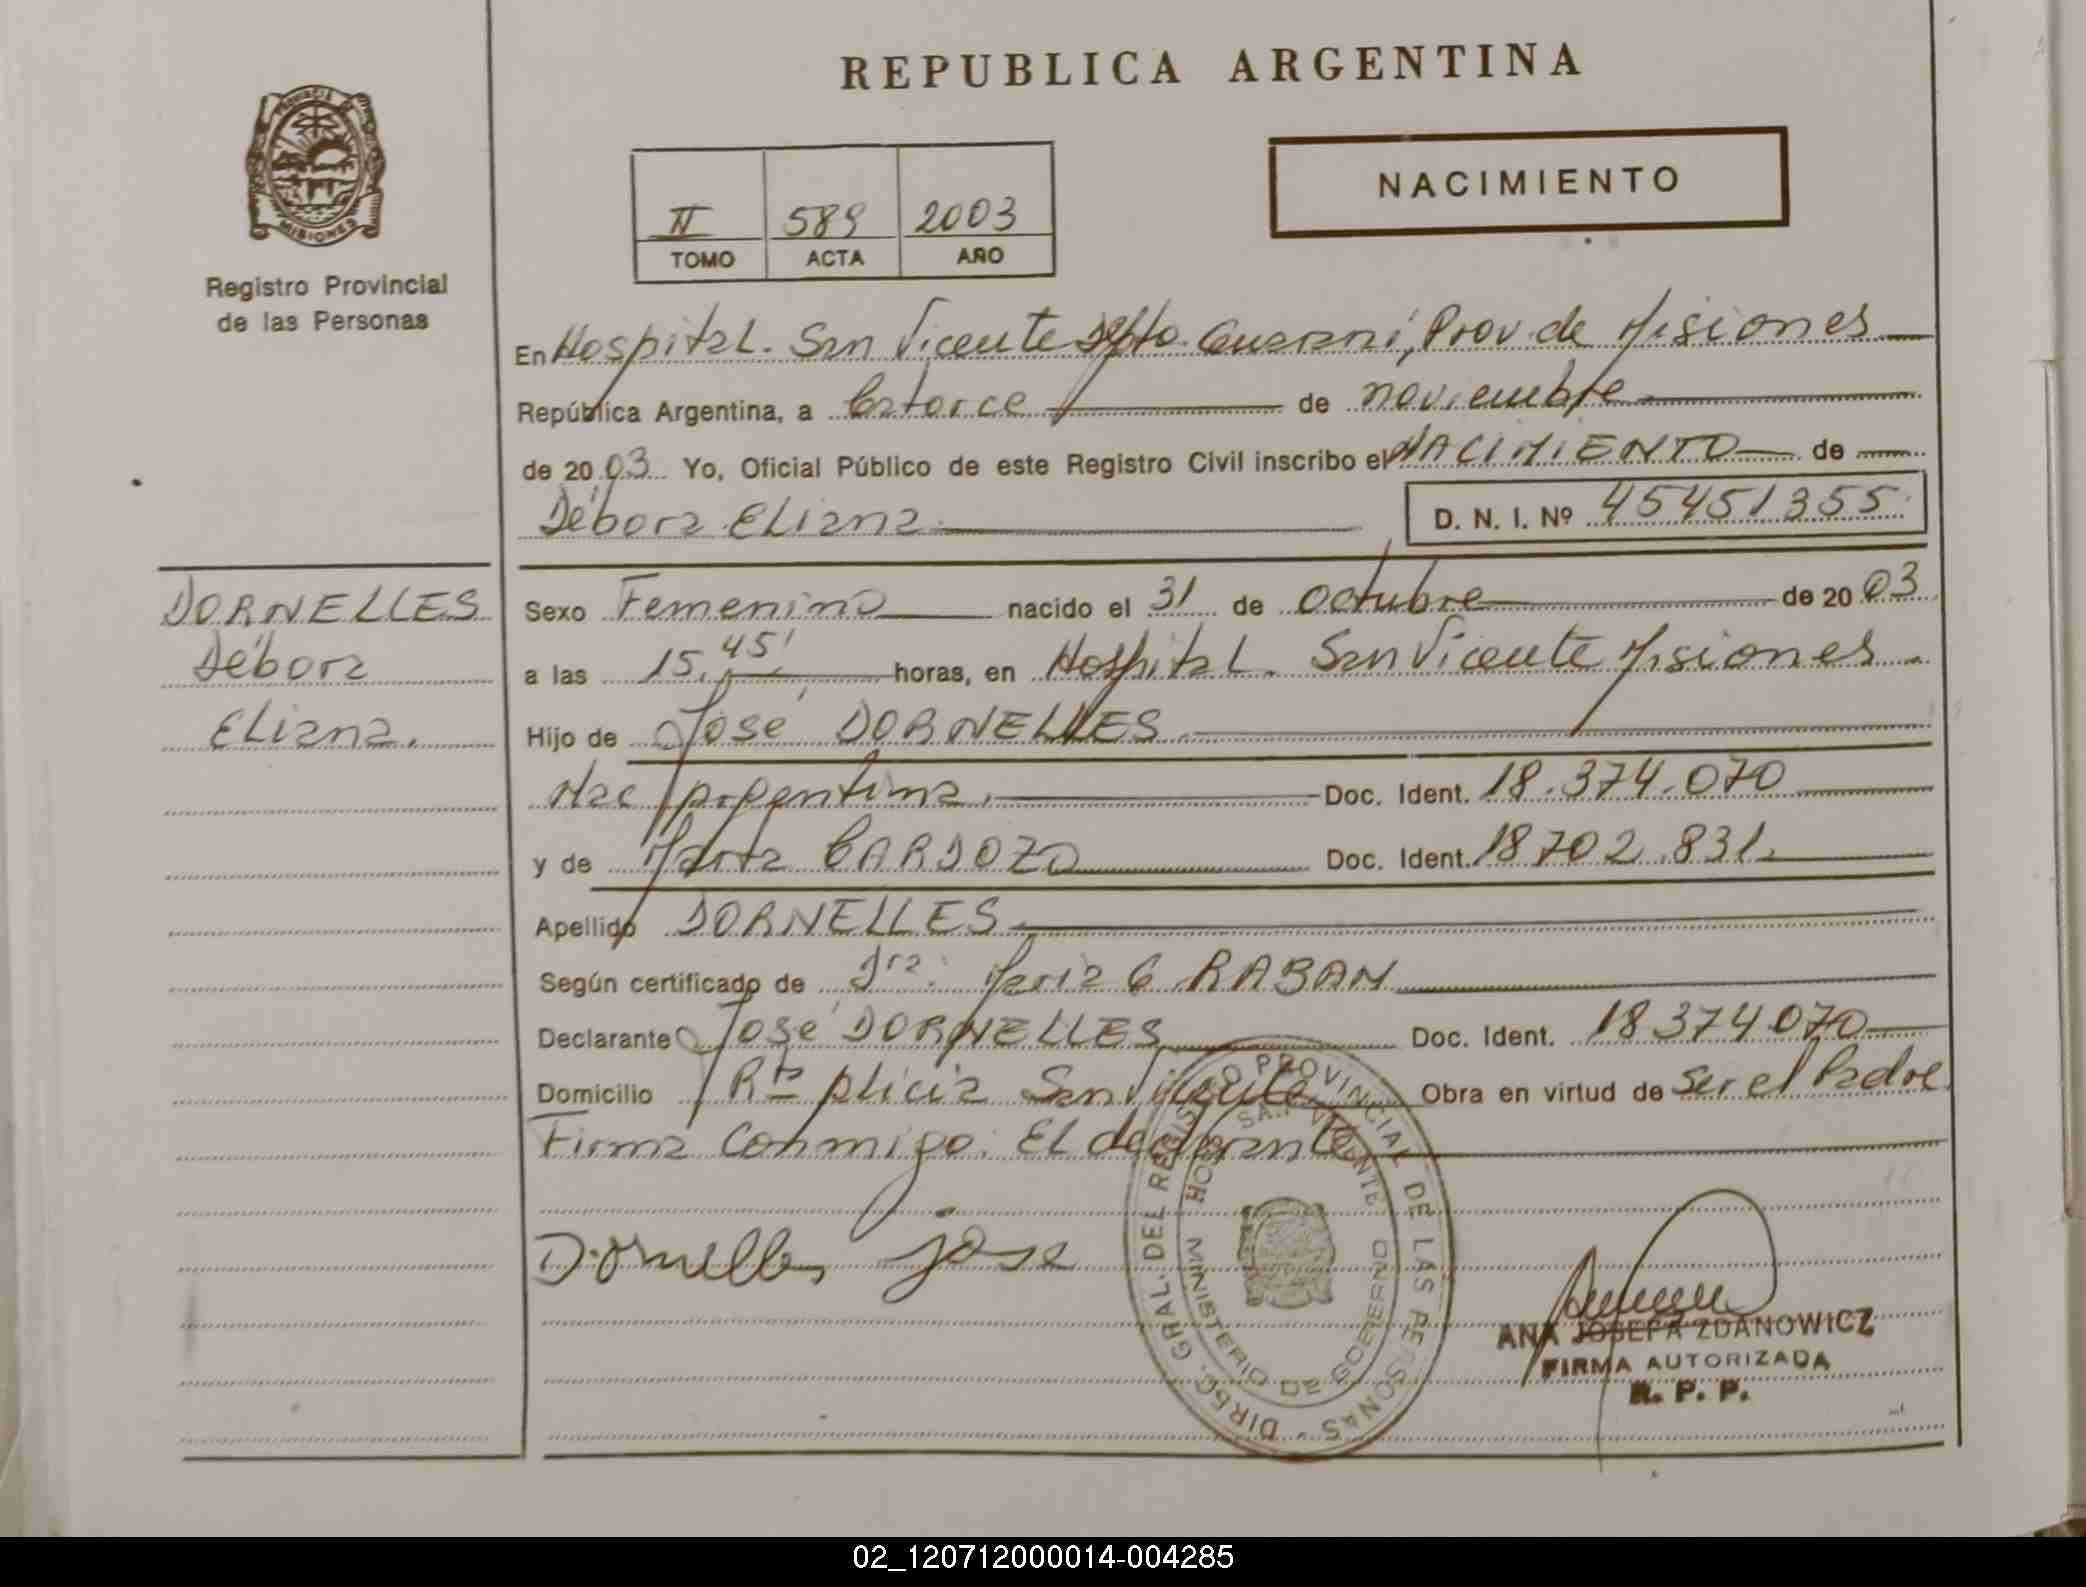 REPUBLICA ARGENTINA
PROVINCIA DE
MISIONES
Registro Provincial
de las Personas
II 589 2003
TOMO ACTA AÑO
NACIMIENTO
En Hospital. San Vicente Dpto. Guaraní, Prov de Misiones
República Argentina, a Catorce de noviembre
de 2003 Yo, Oficial Público de este Registro Civil inscribo el NACIMIENTO de
Débora Eliana D. N. I. Nº 45451355
DORNELLES
Débora
Eliana.
Sexo Femenino nacido el 31 de Octubre de 2003
a las 15,45' horas, en Hospital. San Vicente Misiones
Hijo de José DORNELLES
Nac Argentina. Doc. Ident. 18.374.070
y de Marta CARDOZO Doc. Ident. 18702.831.
Apellido DORNELLES
Según certificado de Dra: María C RABAN
Declarante José DORNELLES Doc. Ident. 18374070
Domicilio San Vicente Obra en virtud de ser el Padre
Firma Conmigo. El declarante
Dornelles jose
DIREC. GRAL. DEL REGISTRO PROVINCIAL DE LAS PERSONAS
HOSP. SAN VICENTE
MINISTERIO DE GOBIERNO
ANA JOSEFA ZDANOWICZ
FIRMA AUTORIZADA
R. P. P.
02_120712000014-004285